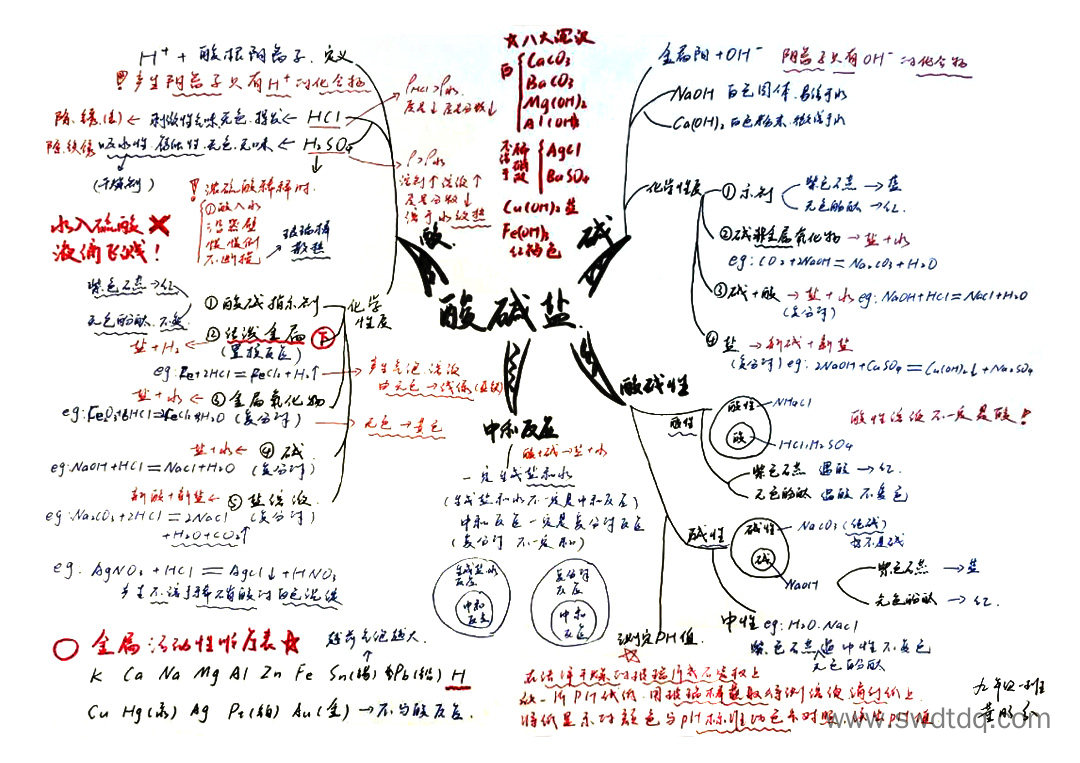 酸碱盐
酸
H⁺ + 酸根阴离子. 定义
! 产生阳离子只有H⁺的化合物
除.锈.(洁) ← 刺激性气味.无色.挥发 ← HCl
除.铁锈 吸水性.腐蚀性.无色.无味 ← H₂SO₄
(干燥剂)
质量↓ 质量分数↓
ρ>ρ水
溶剂↑ 溶液↑
质量分数↓
! 浓硫酸稀释时.
①酸入水
沿器壁
慢慢倒
不断搅
玻璃棒
散热
水入硫酸 ✖
液沸飞溅!
化学
性质
①酸碱指示剂
紫色石蕊 → 红
无色酚酞.不变
②较活泼金属
(置换反应)
盐+H₂ ←
eg: Fe+2HCl=FeCl₂+H₂↑
产生气泡 溶液
由无色→浅绿(亚铁)
盐+水 ← ③金属氧化物
(复分解)
无色→黄色
盐+水 ← ④碱
eg: NaOH+HCl=NaCl+H₂O (复分解)
新酸+新盐 ← ⑤盐溶液.
eg: Na₂CO₃+2HCl=2NaCl (复分解)
+H₂O+CO₂↑
eg. AgNO₃+HCl=AgCl↓+HNO₃
★八大沉淀
白
CaCO₃
BaCO₃
Mg(OH)₂
Al(OH)₃
不溶于稀硝酸
AgCl
BaSO₄
Cu(OH)₂ 蓝
Fe(OH)₃
红褐色
碱
金属阳+OH⁻ 阴离子只有OH⁻的化合物
NaOH 白色固体.易溶于水
Ca(OH)₂ 白色粉末.微溶于水
化学性质
①示剂
紫色石蕊 → 蓝
无色酚酞 → 红.
②碱+非金属氧化物 → 盐+水
eg: CO₂+2NaOH=Na₂CO₃+H₂O
③碱+酸 → 盐+水 eg: NaOH+HCl=NaCl+H₂O
(复分解)
④盐 → 新碱+新盐
(复分解) eg: 2NaOH+CuSO₄=Cu(OH)₂↓+Na₂SO₄
酸碱性
酸性
酸性
酸
NH₄Cl
HCl.H₂SO₄
酸性溶液不一定是酸!
紫色石蕊 遇酸 → 红.
无色酚酞 遇酸 不变色
碱性
碱性
碱
Na₂CO₃(纯碱)
NaOH
紫色石蕊 → 蓝
无色酚酞 → 红.
中性 eg: H₂O.NaCl
紫色石蕊遇中性不变色
无色酚酞
中和反应
酸+碱→盐+水
一定生成盐和水
(生成盐和水不一定是中和反应)
中和反应一定是复分解反应
(复分解 不一定 中和)
生成盐水
反应
中和
反应
复分解
反应
中和
反应
测定PH值
☆
在洁净干燥的玻璃片或石瓷板上
放一片PH试纸.用玻璃棒蘸取待测溶液滴到纸上.
将纸显示的颜色与pH标准比色卡对照
金属活动性顺序表☆
越前气泡越大.
K Ca Na Mg Al Zn Fe Sn(锡) Pb(铅) H
Cu Hg(汞) Ag Pt(铂) Au(金) → 不与酸反应.
九年级一班
www.swdtdq.com